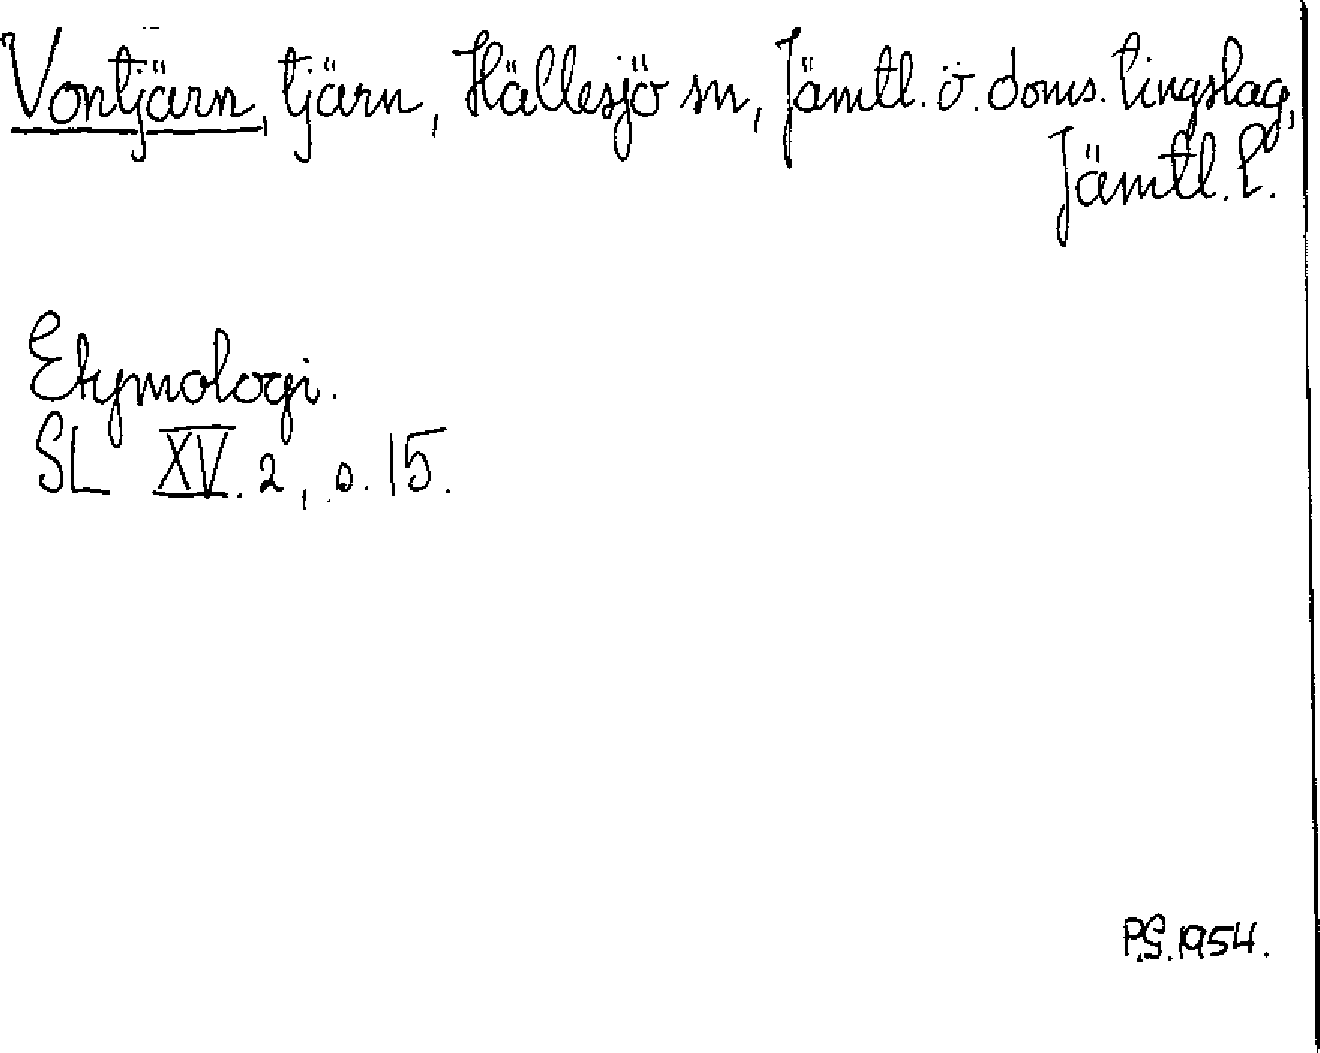 Vontjärn, tjärn, Hällesjö sn, Jämtl. ö. doms. tingslag,
Jämtl. l.
Etymologi.
SL XV. 2, s. 15.
P.S. 1954.